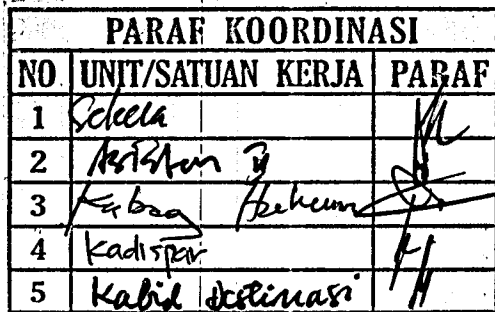 PARAF KOORDINASI
NO UNIT/SATUAN KERJA PARAF
1 Sekda
2 Asisten II
3 Kabag Hukum
4 Kadispar
5 Kabid Destinasi